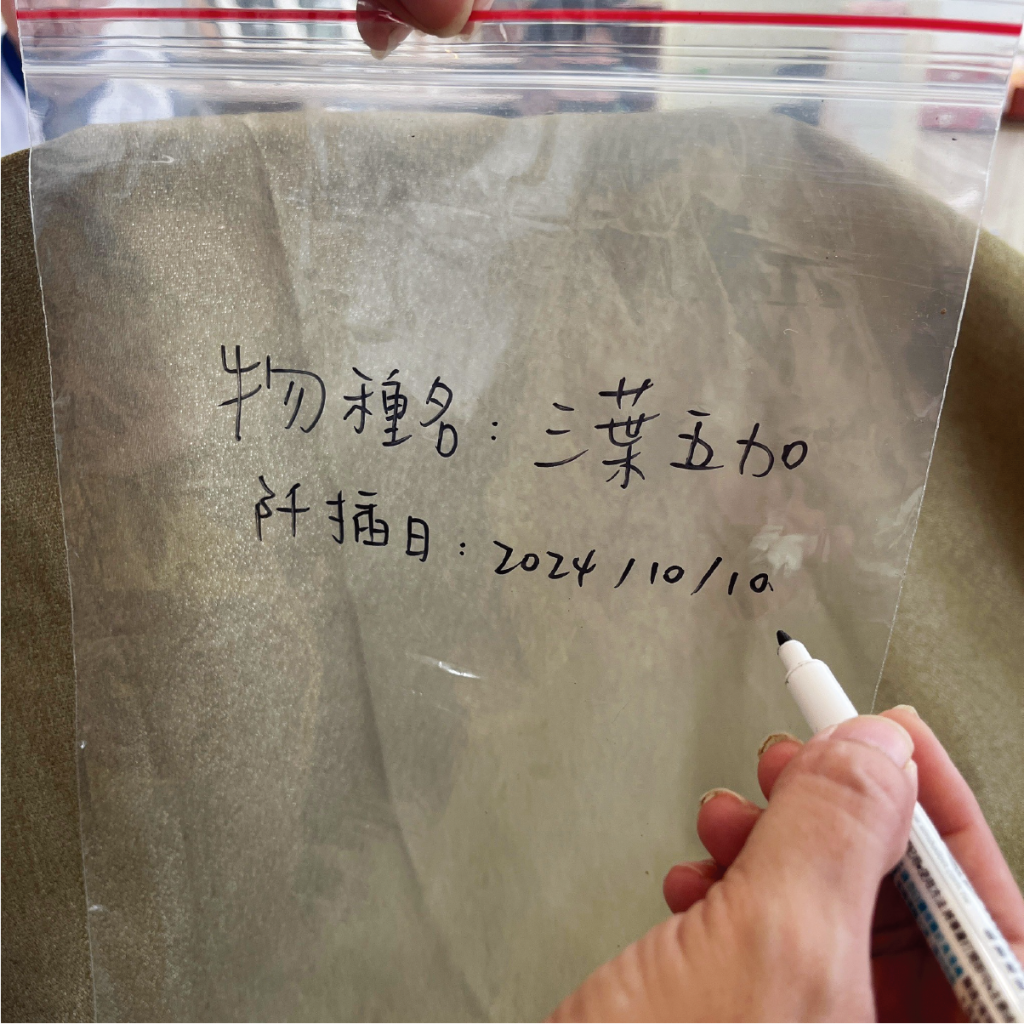 物種名：三葉五加
阡插日：2024/10/10